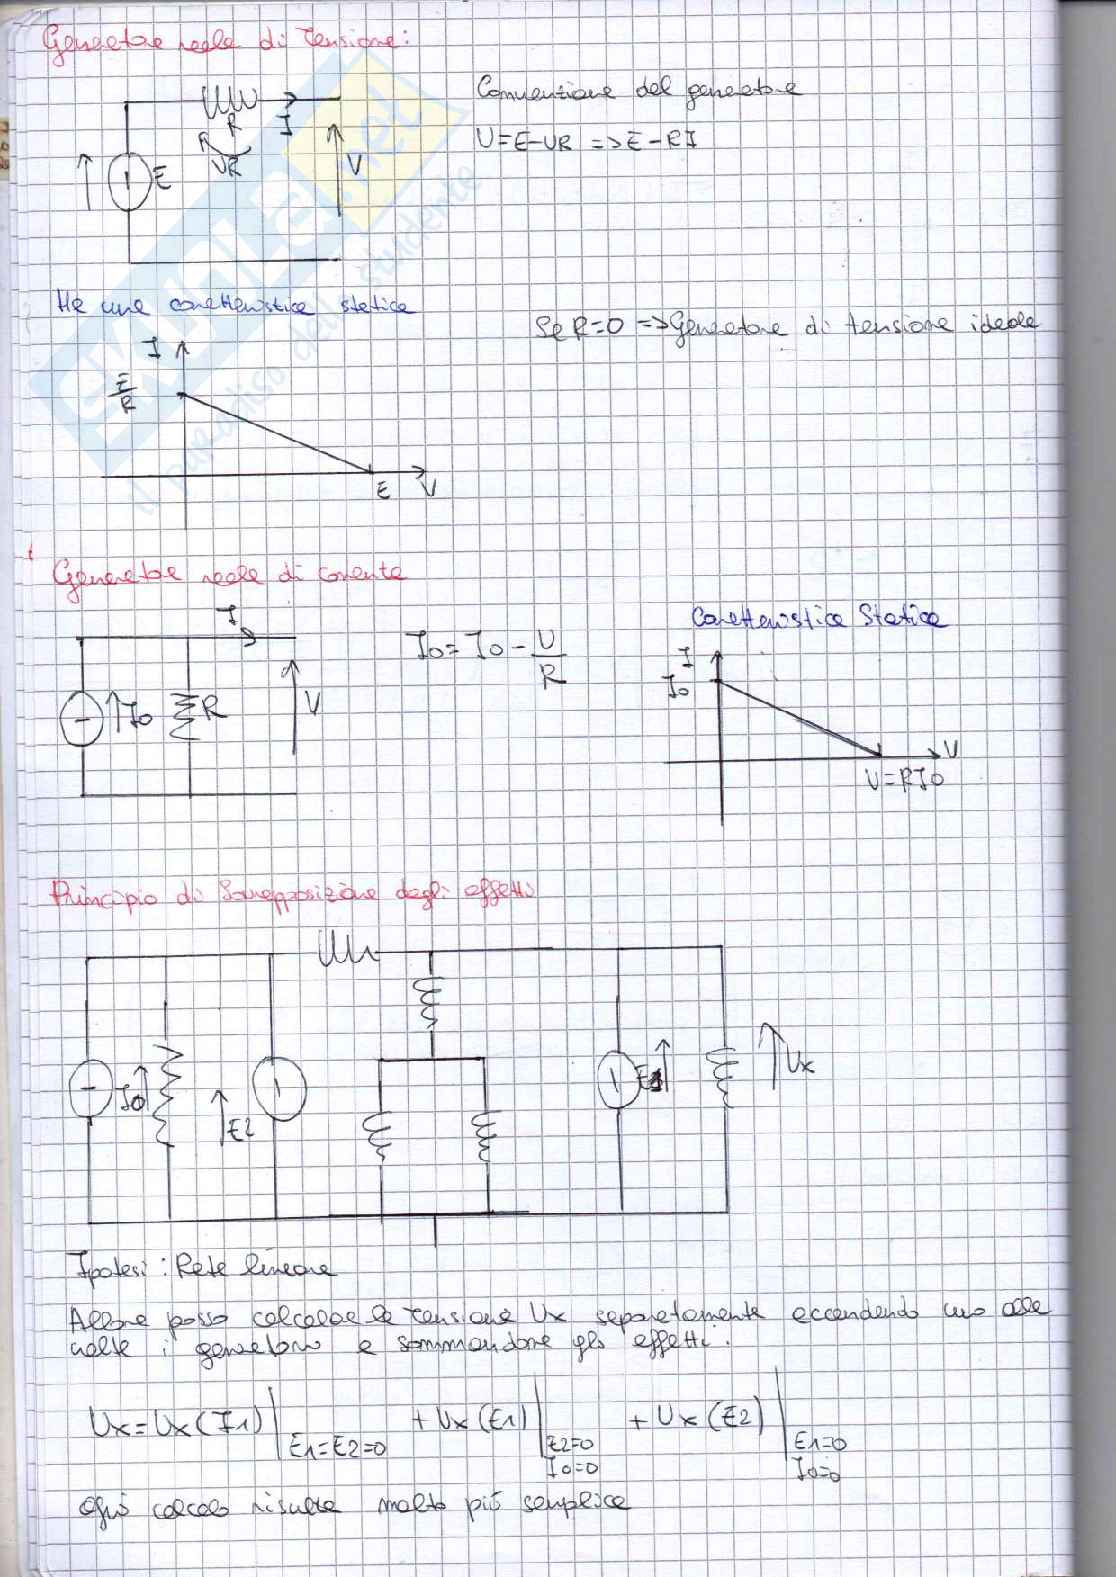 Generatore reale di Tensione:
Convenzione del generatore
R
I
V=E-VR => E-RI
VR
E
V
Ha una caratteristica statica
Se R=0 => Generatore di tensione ideale
I
E/R
E
V
Generatore reale di corrente
I
Caratteristica Statica
I0 = I0 - V/R
I
I0
I0
R
V
V
V=RI0
Principio di Sovrapposizione degli effetti
I0
E2
Vx
Ipotesi: Rete lineare
Allora posso calcolare la tensione Vx separatamente accendendo uno alla
volta i generatori e sommandone gli effetti.
Vx = Vx (I1) | E1=E2=0 + Vx (E1) | E2=0 I0=0 + Vx (E2) | E1=0 I0=0
Ogni calcolo risulta molto più semplice
SKUOLA.net
il paradiso dello studente